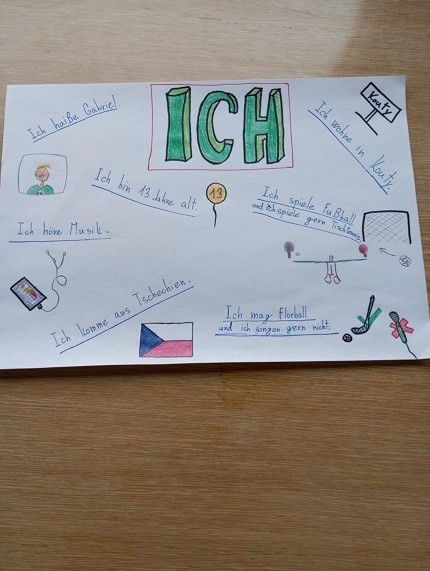 ICH
Kouty
Ich haiße Gabriel.
Ich wohne in Kouty.
Ich bin 13 Jahre alt.
13
Ich spiele Fußball
und ich spiele gern Tischtennis.
Ich höre Musik.
Ich komme aus Tschechien.
Ich mag Florball
und ich singen gern nicht.